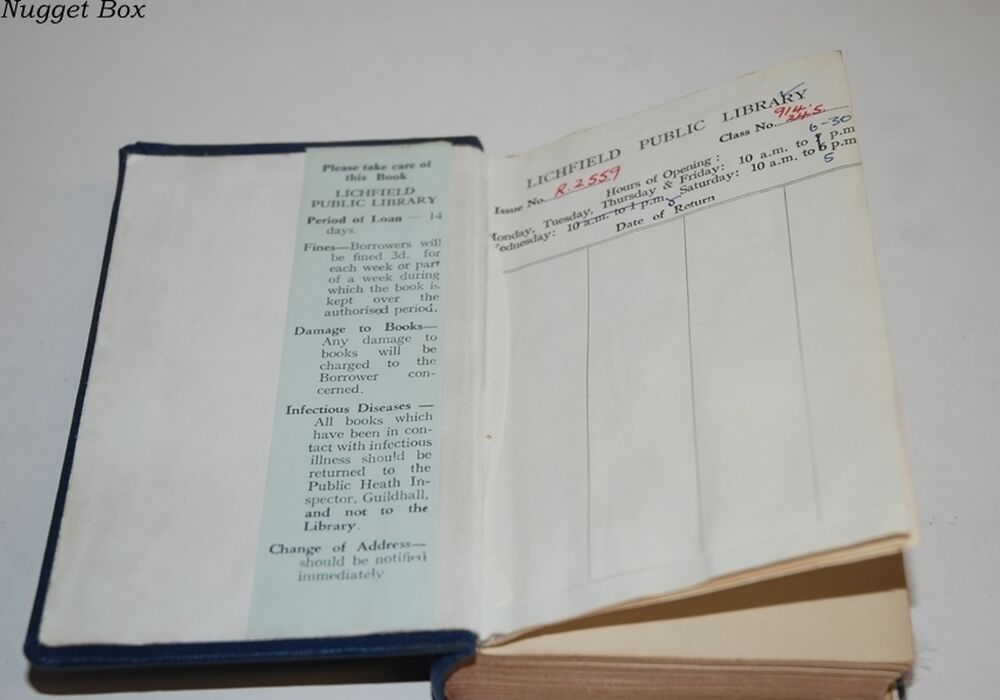 Nugget Box
Please take care of
this Book
LICHFIELD
PUBLIC LIBRARY
Period of Loan — 14
days.
Fines—Borrowers will
be fined 3d. for
each week or part
of a week during
which the book is
kept over the
authorised period.
Damage to Books—
Any damage to
books will be
charged to the
Borrower con-
cerned.
Infectious Diseases —
All books which
have been in con-
tact with infectious
illness should be
returned to the
Public Heath In-
spector, Guildhall,
and not to the
Library.
Change of Address—
should be notified
immediately.
LICHFIELD PUBLIC LIBRARY
914.
Issue No. R.2559 Class No. 245
Hours of Opening :
6-30
Monday, Tuesday, Thursday & Friday: 10 a.m. to p.m
Wednesday: 10 a.m. to 1 p.m. Saturday: 10 a.m. to 6 p.m
5
Date of Return